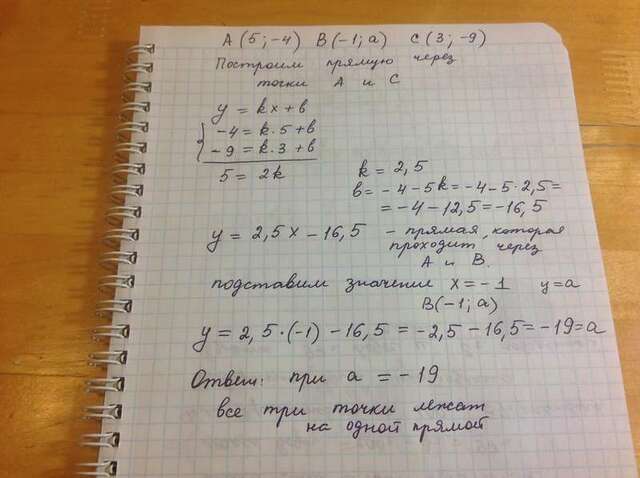 A (5; -4) B (-1; a) C (3; -9)
Построим прямую через
точки A и C
y = kx + b
-4 = k·5 + b
-9 = k·3 + b
5 = 2k
k = 2,5
b = -4 - 5k = -4 - 5·2,5 =
= -4 - 12,5 = -16,5
y = 2,5x - 16,5 - прямая, которая
проходит через
A и B.
подставим значение x = -1 y = a
B(-1; a)
y = 2,5·(-1) - 16,5 = -2,5 - 16,5 = -19 = a
Ответ: при a = -19
все три точки лежат
на одной прямой